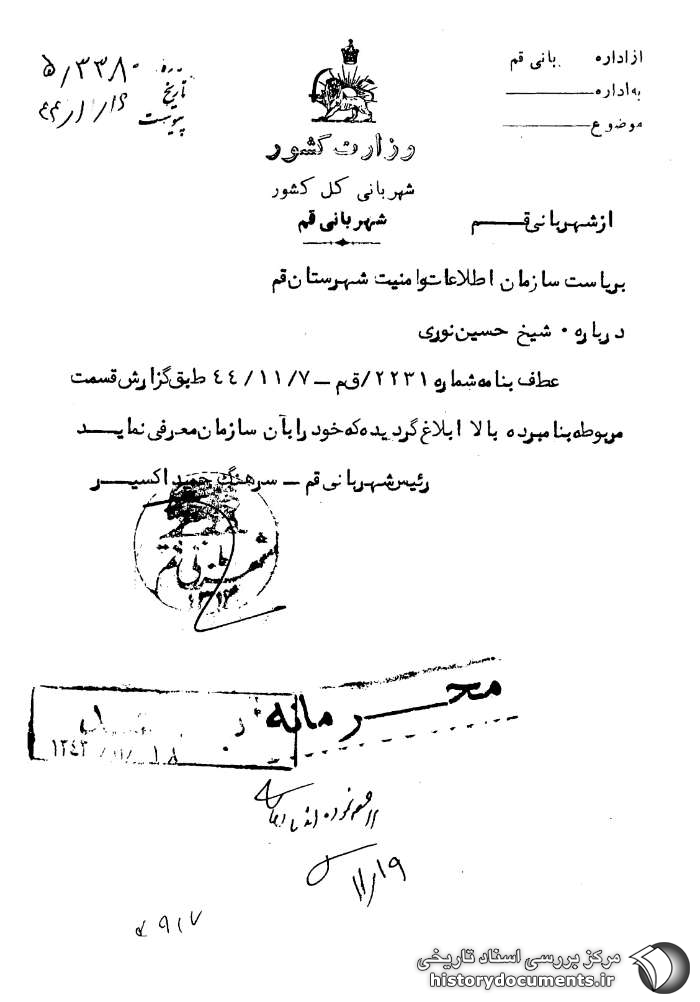 از اداره بانی قم
به اداره
موضوع
شماره ۵/۳۳۸۰
تاریخ
پیوست
وزارت کشور
شهربانی کل کشور
شهربانی قم
از شهربانی قم
بریاست سازمان اطلاعات وامنیت شهرستان قم
درباره ۰ شیخ حسین نوری
عطف بنامه شماره ۲۲۳۱/ق م – ۴۴/۱۱/۷ طبق گزارش قسمت
مربوطه بنامبرده بالا ابلاغ گردیده که خود را بآن سازمان معرفی نماید
رئیس شهربانی قم – سرهنگ حمید اکسیر
شهربانی قم
محرمانه
۱۱/۱۹
مرکز بررسی اسناد تاریخی
historydocuments.ir